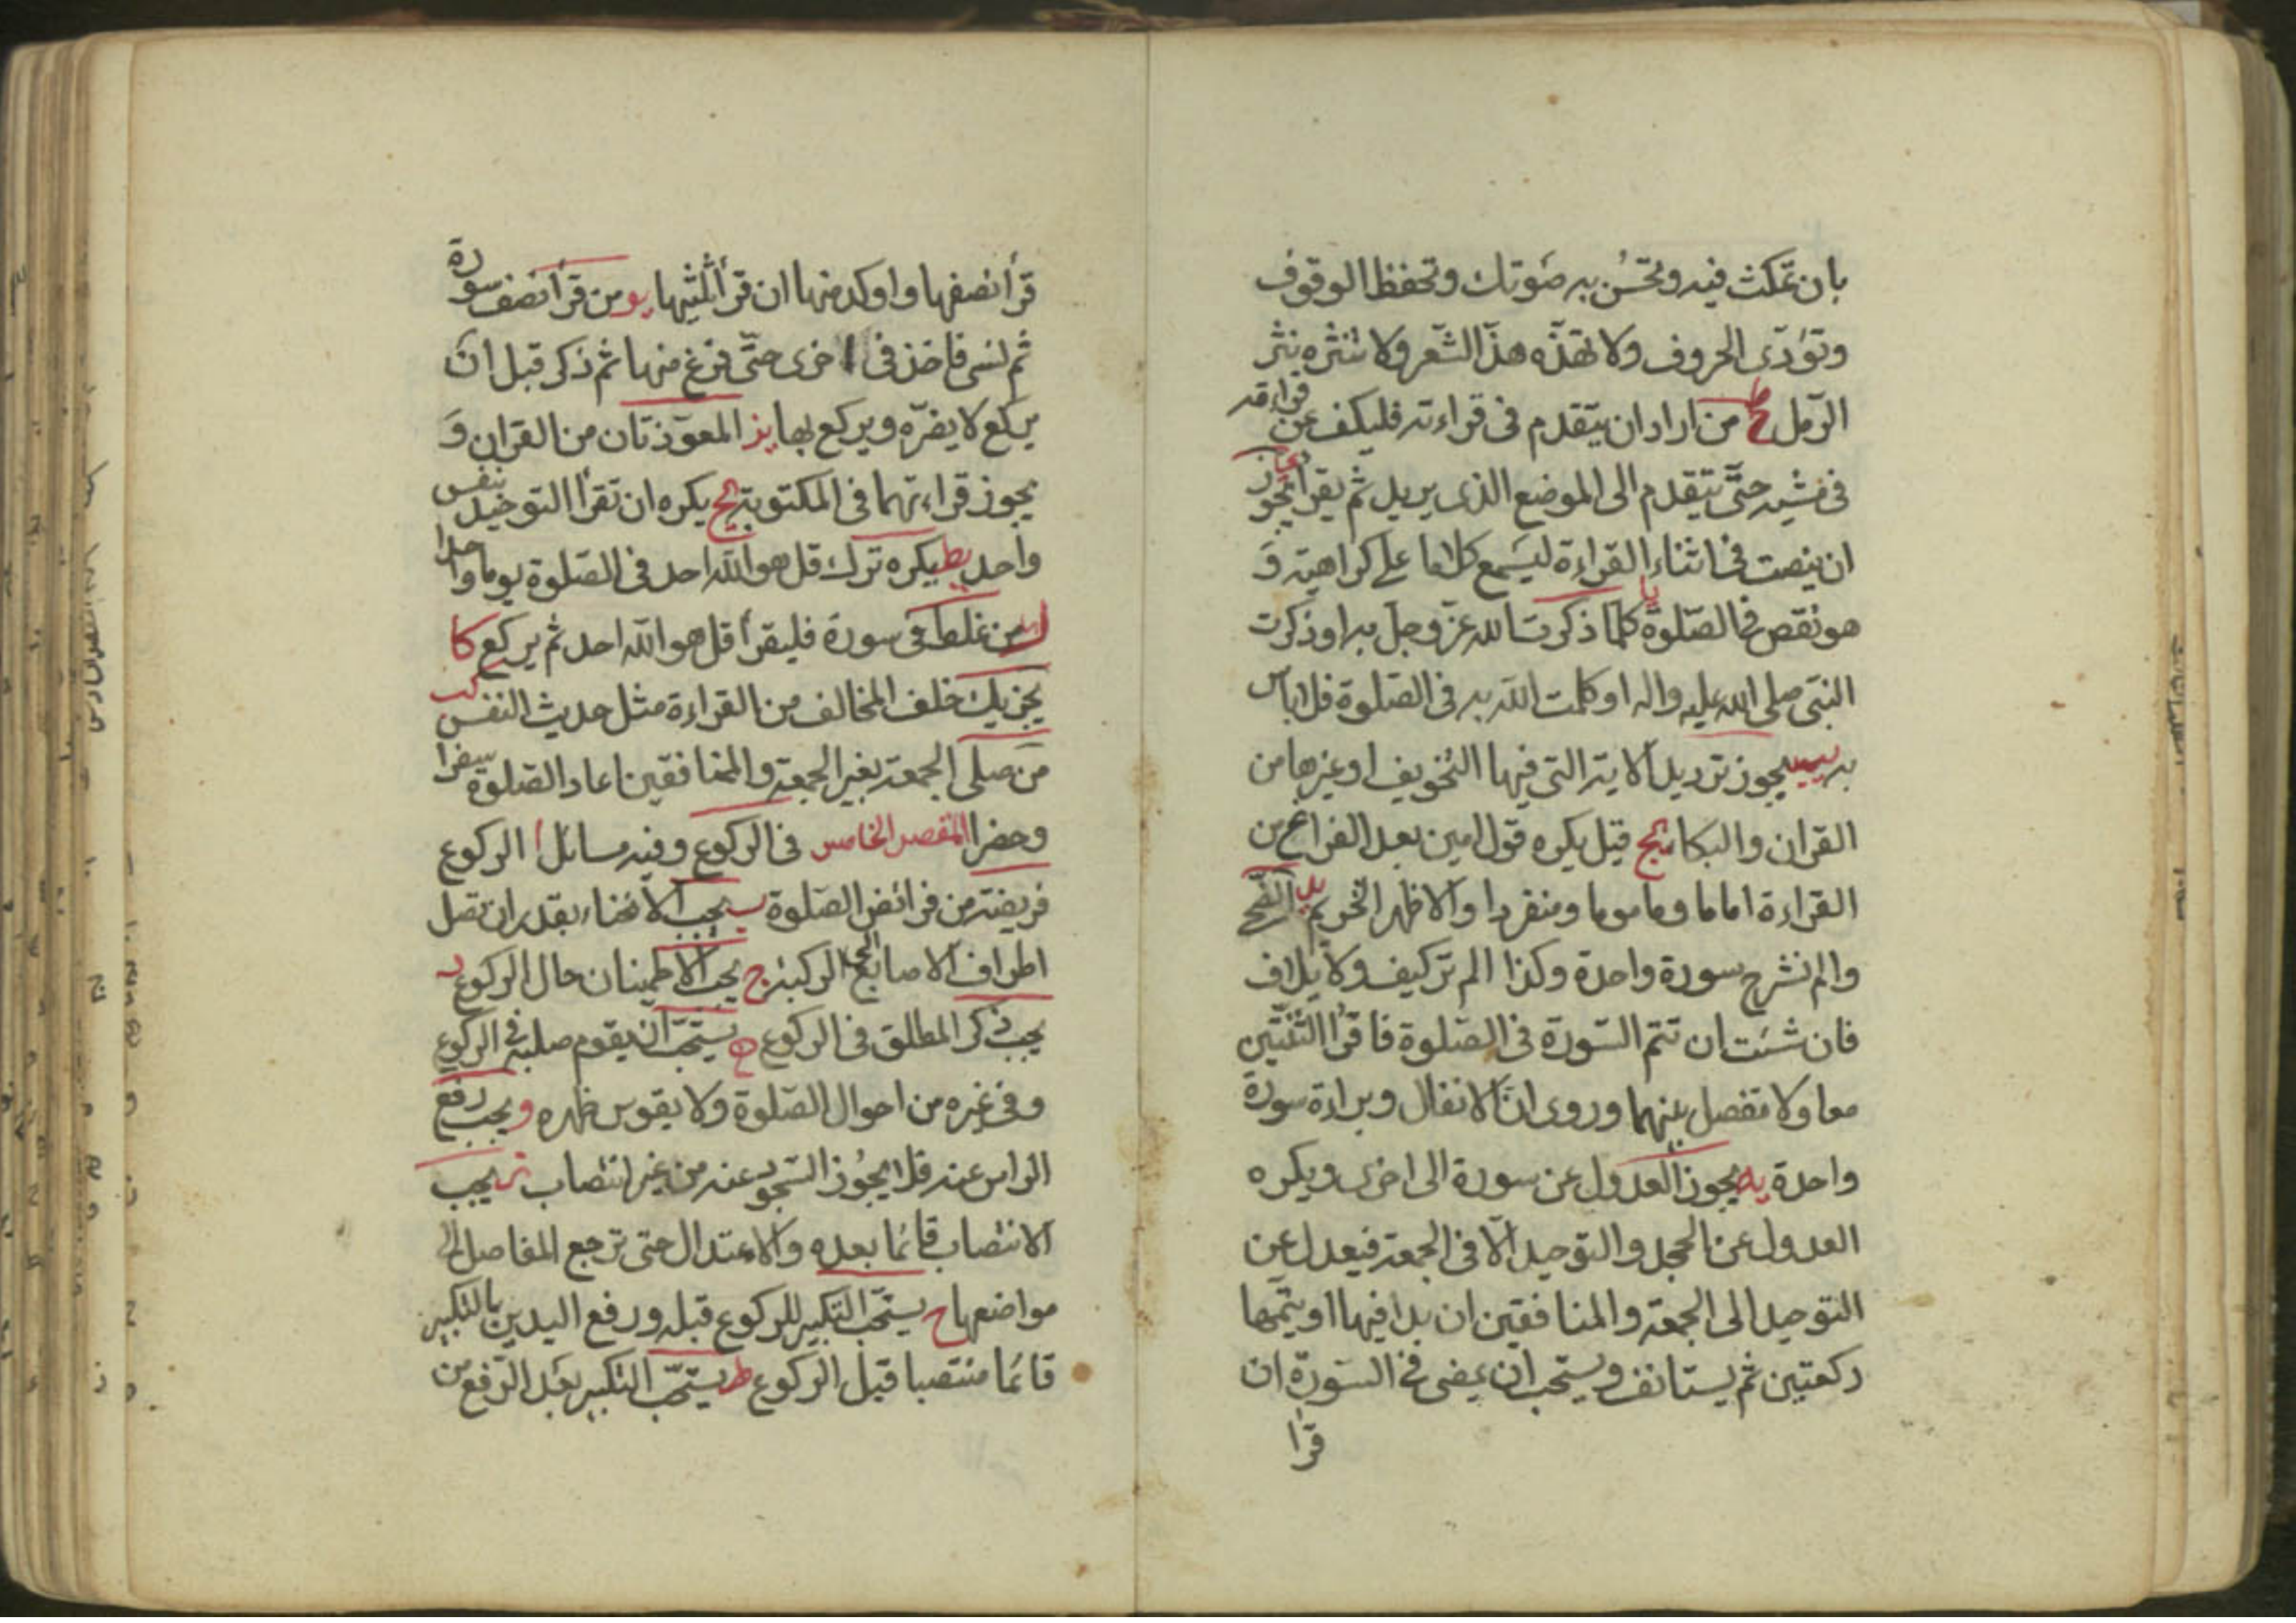 بان تمكث فيه وتحسن به صوتك وتحفظ الوقوف
وتؤدى الحروف ولا تهذه هذّ الشعر ولا تنثره نثر
الرمل ط من اراد ان يتقدم فى قراءته فليكف عن قراءته
فى مشيه حتى يتقدم الى الموضع الذى يريد ثم يقرأ ى يجوز
ان ينصت فى اثناء القراءة ليسمع كلاما على كراهية و
هو نقص فى الصلوة يا كلما ذكرت الله عز وجل به او ذكرت
النبى صلى الله عليه واله او كلمت الله به فى الصلوة فلا باس
به يب يجوز ترديد الاية التى فيها التخويف او غيرها من
القران والبكاء يج قيل يكره قول امين بعد الفراغ من
القراءة اماما وماموما ومنفردا والاظهر التحريم يد الضحى
والم نشرح سورة واحدة وكذا الم تر كيف ولايلاف
فان شئت ان تتم السورة فى الصلوة فاقرأ الثنتين
معا ولا تفصل بينهما وروى ان الانفال وبراءة سورة
واحدة يه يجوز العدول عن سورة الى اخرى ويكره
العدول عن الجحد والتوحيد الا فى الجمعة فيعدل عن
التوحيد الى الجمعة والمنافقين ان بدا فيها او يتمها
ركعتين ثم يستانف ويستحب ان يمضى فى السورة ان
قرا
قرأ نصفها واوكد منها ان قرأ ثلثيها يو من قرأ نصف سورة
ثم نسى فاخذ فى اخرى حتى فرغ منها ثم ذكر قبل ان
يركع لا يضره ويركع بها يز المعوذتان من القران و
يجوز قراءتهما فى المكتوبة يح يكره ان تقرأ التوحيد بنفس
واحد يط يكره ترك قل هو الله احد فى الصلوة يوما واحدا
ك من غلط فى سورة فليقرأ قل هو الله احد ثم يركع كا
يجزيك خلف المخالف من القراءة مثل حديث النفس كب
من صلى الجمعة بغير الجمعة والمنافقين اعاد الصلوة سفرا
وحضرا المقصد الخامس فى الركوع وفيه مسائل ا الركوع
فريضة من فرائض الصلوة ب يجب الانحناء بقدر ان تصل
اطراف الاصابع الى الركبة ج يجب الاطمينان حال الركوع د
يجب ذكر المطلق فى الركوع ه يستحب ان يقوم صلبه فى الركوع
وفى غيره من احوال الصلوة ولا يقوس ظهره و يجب رفع
الراس عنه فلا يجوز السجود عنه من غير انتصاب ز يجب
الانتصاب قائما بعده والاعتدال حتى ترجع المفاصل الى
مواضعها ح يستحب التكبير للركوع قبله ورفع اليدين بالتكبير
قائما منتصبا قبل الركوع ط يستحب التكبير بعد الرفع من